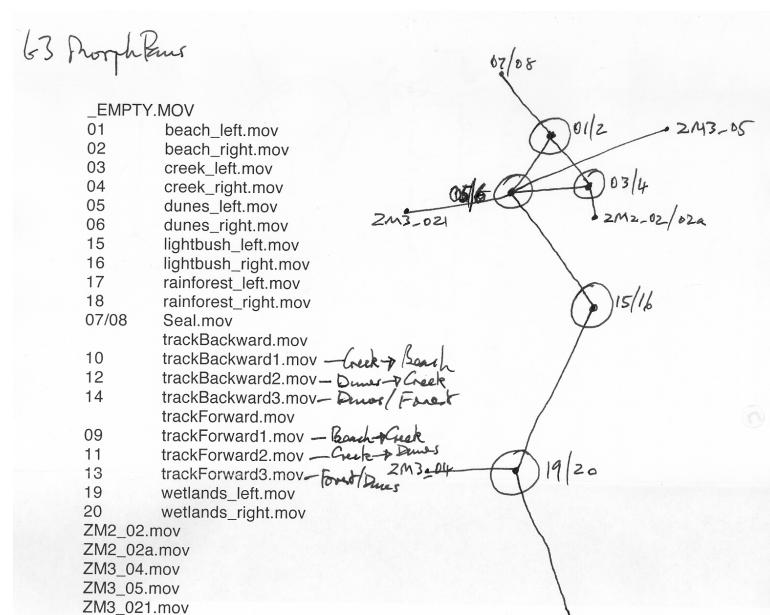 63 MorphPans
_EMPTY.MOV
01 beach_left.mov
02 beach_right.mov
03 creek_left.mov
04 creek_right.mov
05 dunes_left.mov
06 dunes_right.mov
15 lightbush_left.mov
16 lightbush_right.mov
17 rainforest_left.mov
18 rainforest_right.mov
07/08 Seal.mov
trackBackward.mov
10 trackBackward1.mov – Creek → Beach
12 trackBackward2.mov – Dunes → Creek
14 trackBackward3.mov – Dunes/Forest
trackForward.mov
09 trackForward1.mov – Beach → Creek
11 trackForward2.mov – Creek → Dunes
13 trackForward3.mov – Forest/Dunes
19 wetlands_left.mov
20 wetlands_right.mov
ZM2_02.mov
ZM2_02a.mov
ZM3_04.mov
ZM3_05.mov
ZM3_021.mov
07/08
01/2
ZM3_05
03/4
05/6
ZM3_021
ZM2_02/02a
15/16
ZM3_04
19/20